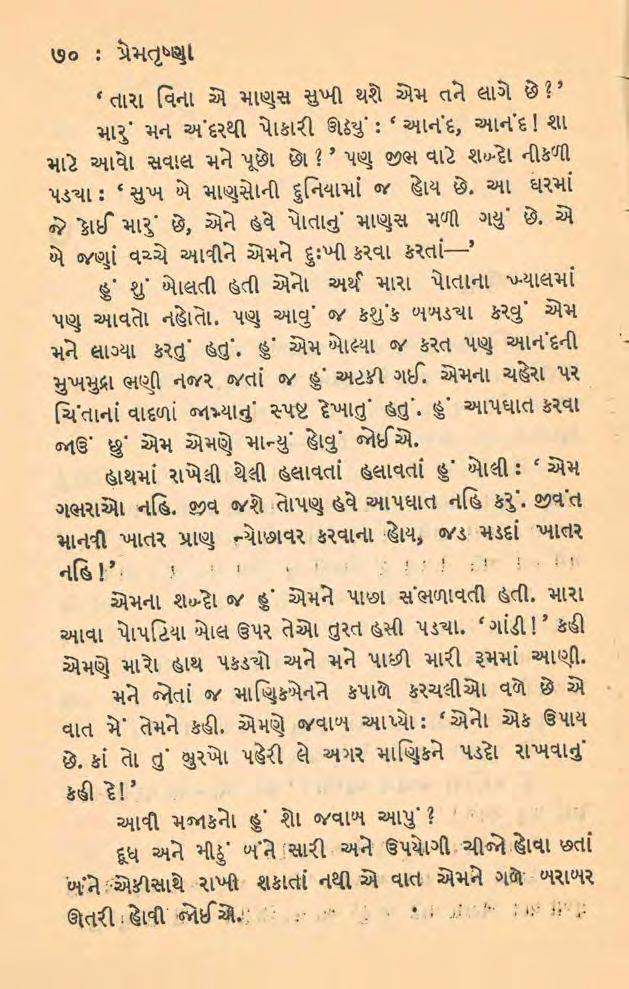 ૭૦ : પ્રેમતૃષ્ણા
‘ તારા વિના એ માણસ સુખી થશે એમ તને લાગે છે ? ’
મારું મન અંદરથી પોકારી ઊઠયું : ‘ આનંદ, આનંદ ! શા
માટે આવો સવાલ મને પૂછો છો ? ’ પણ જીભ વાટે શબ્દો નીકળી
પડયા : ‘ સુખ બે માણસોની દુનિયામાં જ હોય છે. આ ઘરમાં
જે કોઈ મારું છે, એને હવે પોતાનું માણસ મળી ગયું છે. એ
બે જણાં વચ્ચે આવીને એમને દુઃખી કરવા કરતાં—’
હું શું બોલતી હતી એનો અર્થ મારા પોતાના ખ્યાલમાં
પણ આવતો નહોતો. પણ આવું જ કશુંક બબડયા કરવું એમ
મને લાગ્યા કરતું હતું. હું એમ બોલ્યા જ કરત પણ આનંદની
મુખમુદ્રા ભણી નજર જતાં જ હું અટકી ગઈ. એમના ચહેરા પર
ચિંતાનાં વાદળાં જામ્યાનું સ્પષ્ટ દેખાતું હતું. હું આપઘાત કરવા
જાઉં છું એમ એમણે માન્યું હોવું જોઈએ.
હાથમાં રાખેલી થેલી હલાવતાં હલાવતાં હું બોલી : ‘ એમ
ગભરાઓ નહિ. જીવ જશે તોપણ હવે આપઘાત નહિ કરું. જીવંત
માનવી ખાતર પ્રાણ ન્યોછાવર કરવાના હોય, જડ મડદાં ખાતર
નહિ ! ’
એમના શબ્દો જ હું એમને પાછા સંભળાવતી હતી. મારા
આવા પોપટિયા બોલ ઉપર તેઓ તુરત હસી પડયા. ‘ ગાંડી ! ’ કહી
એમણે મારો હાથ પકડચો અને મને પાછી મારી રૂમમાં આણી.
મને જોતાં જ માણિકબેનને કપાળે કરચલીઓ વળે છે એ
વાત મેં તેમને કહી. એમણે જવાબ આપ્યો : ‘ એનો એક ઉપાય
છે. કાં તો તું બુરખો પહેરી લે અગર માણિકને પડદો રાખવાનું
કહી દે ! ’
આવી મજાકનો હું શો જવાબ આપું ?
દૂધ અને મીઠું બંને સારી અને ઉપયોગી ચીજો હોવા છતાં
બંને એકીસાથે રાખી શકાતાં નથી એ વાત એમને ગળે બરાબર
ઊતરી હોવી જોઈએ.